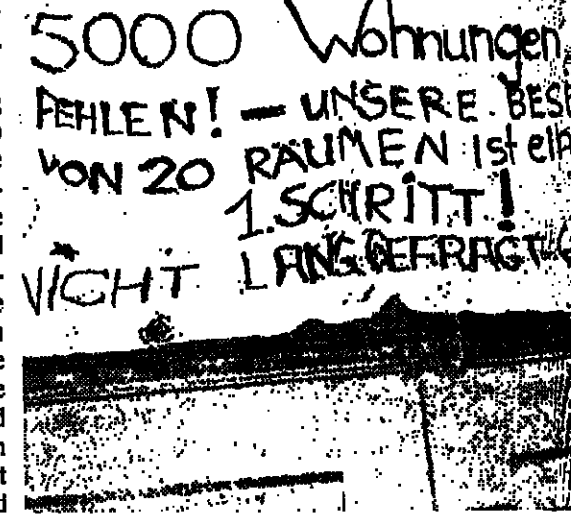 5000 Wohnungen
FEHLEN! — UNSERE BES
VON 20 RÄUMEN ist ein
1. SCHRITT!
NICHT LANG GEFRAGT